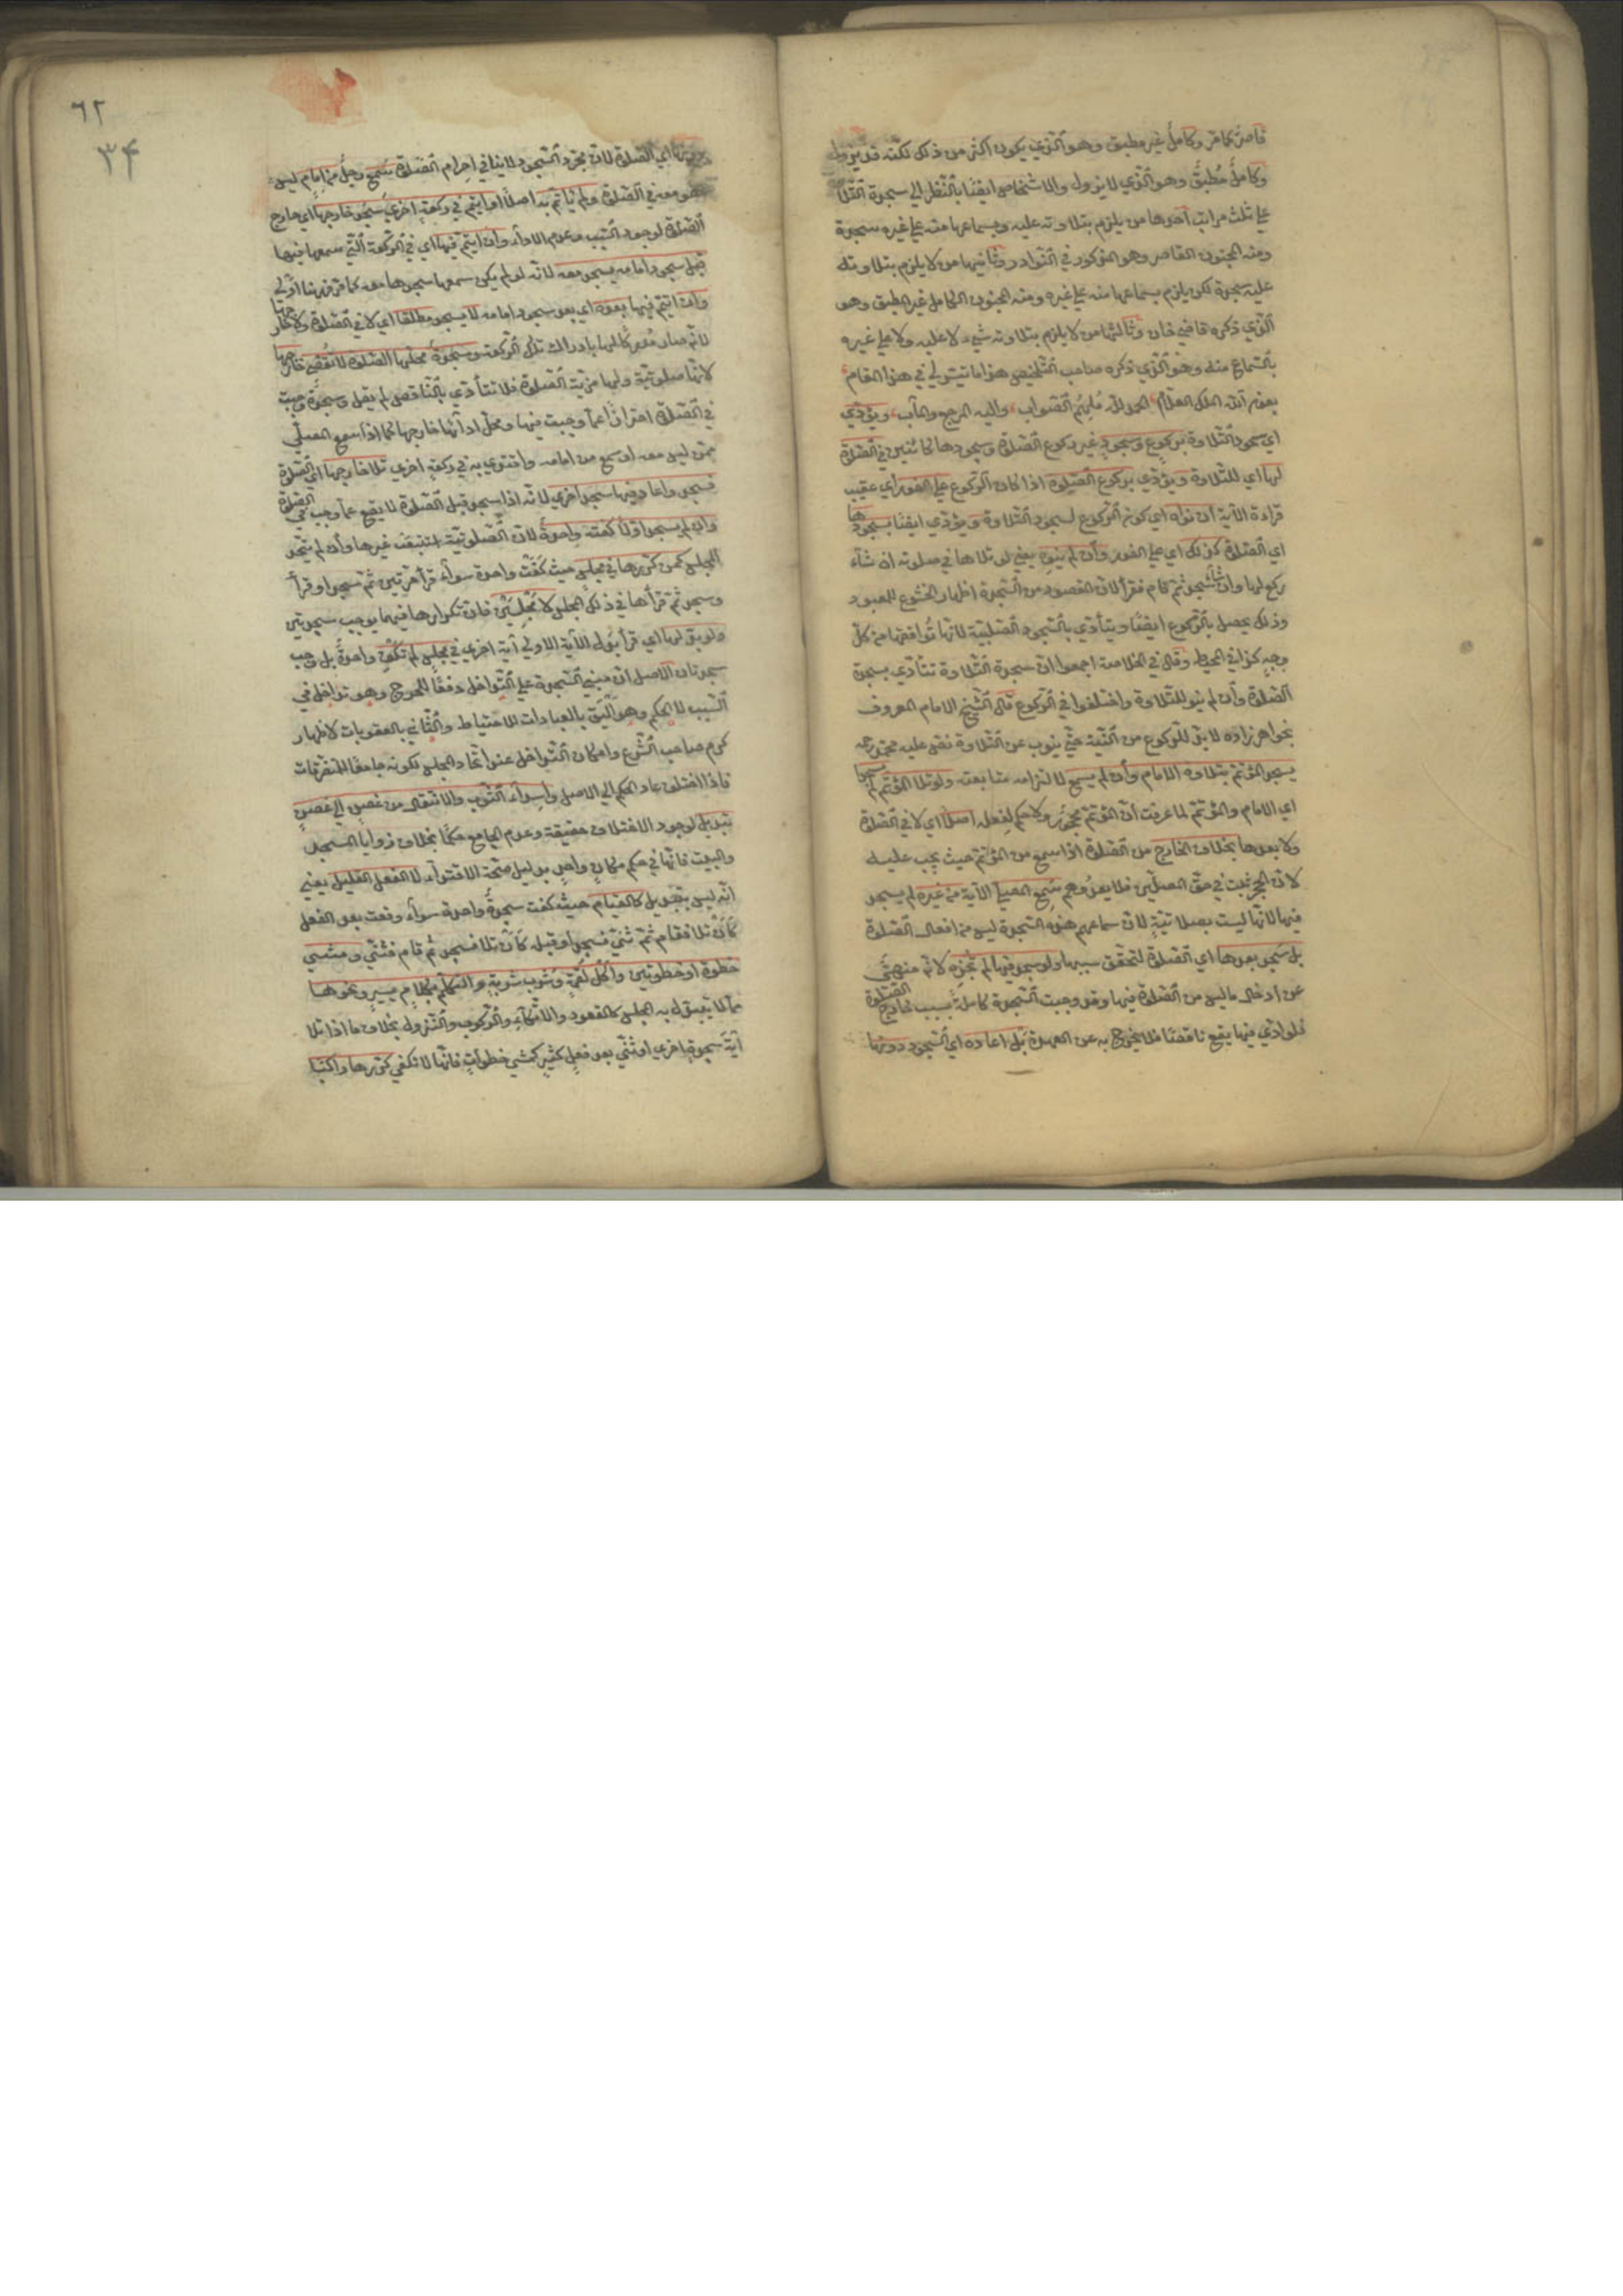 قاصر كما مر وكامل غير مطبق وهو الذي يكون اكثر من ذلك لكنه قد يزول
وكامل مطبق وهو الذي لا يزول والاشخاص ايضا بالنظر الي سجدة التلا
علي ثلث مراتب احدها من يلزم بتلاوته عليه وبسماعها منه علي غيره سجدة
ومنه المجنون القاصر وهو المذكور في النوادر وثانيها من لا يلزم بتلاوته
عليه سجدة لكن يلزم بسماعها منه علي غيره ومنه المجنون الكامل غير المطبق وهو
الذي ذكره قاضي خان وثالثها من لا يلزم بتلاوته شيء لا عليه ولا علي غيره
بالسماع منه وهو الذي ذكره صاحب التلخيص هذا ما تيسر لي في هذا المقام
بعون الله الملك العلام الحمد لله ملهم الصواب واليه المرجع والمآب ويؤدي
اي سجود التلاوة بركوع وسجود غير ركوع الصلوة وسجودها كائنين في الصلوة
لها اي للتلاوة ويؤدي بركوع الصلوة اذا كان الركوع علي الفور اي عقيب
قراءة الآية ان نواه اي كون الركوع لسجود التلاوة ويؤدي ايضا بسجودها
اي الصلوة كذلك اي علي الفور وان لم ينوه يعني لو تلاها في صلوته ان شاء
ركع لها وان شاء سجد ثم قام فقرأ لان المقصود من السجدة اظهار الخشوع للمعبود
وذلك يحصل بالركوع ايضا ويتأدي بالسجود الصلبية لانها توافقها من كل
وجه كذا في المحيط وقال في الخلاصة اجمعوا ان سجدة التلاوة تتأدي بسجدة
الصلوة وان لم ينو للتلاوة واختلفوا في الركوع قال الشيخ الامام المعروف
بخواهر زاده لا بد للركوع من النية حتي ينوب عن التلاوة نص عليه محمد رحمه
يسجد المؤتم بتلاوة الامام وان لم يسمع لالتزامه متابعته ولو تلا المؤتم لم يسجدا
اي الامام والمؤتم لما عرفت ان المؤتم محجور ولا حكم لفعله اصلا اي لا في الصلوة
ولا بعدها بخلاف الخارج من الصلوة اذا سمع من المؤتم حيث يجب عليه
لان الحجر ثبت في حق المصلين فلا يعدوهم سمع المصلي الآية من غيره لم يسجد
فيها لانها ليست بصلاتية لان سماعهم هذه السجدة ليس من افعال الصلوة
بل سجد بعدها اي الصلوة لتحقق سببها ولو سجد فيها لم تجزه لانه منهي
عن ادخال ما ليس من الصلوة فيها وقد وجبت السجدة كاملة بسبب خارج الصلوة
فلو ادي فيها يقع ناقصا فلا يخرج به عن العهدة بل اعاده اي السجود دونها
٦٢
٣۴
دونها اي الصلوة لان مجرد السجود لا ينافي احرام الصلوة سمع رجل من امام ليس
هو معه في الصلوة ولم يأتم به اصلا او ايتم في ركعة اخري سجد خارجها اي خارج
الصلوة لوجود السبب وعدم الاداء وان ايتم فيها اي في الركعة التي سمعها فيها
قبل سجود امامه يسجد معه لانه لو لم يكن سمعها سجدها معه كما مر فهنا اولي
وان ايتم فيها بعده اي بعد سجود امامه لا يسجد مطلقا اي لا في الصلوة ولا خارجها
لانه صار مدركا لها بادراك تلك الركعة وسجدة محلها الصلوة لا تقضي خارجها
لانها صلوتية ولها مزية الصلوة فلا تتأدي بالناقص لم يقل وسجدة وجبت
في الصلوة احترازا عما وجبت فيها ومحل ادائها خارجها كما اذا سمع المصلي
ممن ليس معه او سمع من امامه واقتدي به في ركعة اخري تلا خارجها اي الصلوة
فسجد واعاد فيها سجد اخري لانه اذا سجد قبل الصلوة لا يقع عما وجب في الصلوة
وان لم يسجد اولا كفته واحدة لان الصلوتية استتبعت غيرها وان لم يتحد
المجلس كمن كررها في مجلس حيث كفت واحدة سواء قرأ مرتين ثم سجد او قرأ
وسجد ثم قرأها في ذلك المجلس لا مجلسين فان تكرارها فيهما يوجب سجدتين
ولو بدلها اي قرأ بدل الآية الاولي آية اخري في مجلس لم تكف واحدة بل وجب
سجدتان الاصل ان مبني السجدة علي التداخل دفعا للحرج وهو تداخل في
السبب لا الحكم وهو اليق بالعبادات للاحتياط والثاني بالعقوبات لاظهار
كرم صاحب الشرع وامكان التداخل عند اتحاد المجلس لكونه جامعا للمتفرقات
فاذا اختلف عاد الحكم الي الاصل واسداء الثوب والانتقال من غصن الي غصن
تبديل لوجود الاختلاف حقيقة وعدم الجامع حكما بخلاف زوايا المسجد
والبيت فانها في حكم مكان واحد بدليل صحة الاقتداء لا الفعل القليل يعني
انه ليس بتبديل كالقيام حيث كفت سجدة واحدة سواء وقعت بعد الفعل
كأن تلا فقام ثم ثني فسجد او قبله كأن تلا فسجد ثم قام فثني ومشي
خطوة او خطوتين واكل لقمة وشرب شربة والتكلم بكلام يسير ونحوها
مما لا يتبدل به المجلس كالقعود والاتكاء والركوب والنزول بخلاف ما اذا تلا
آية سجدة اخري او ثني بعد فعل كثير كمشي خطوات فانها لا تكفي كررها راكبا